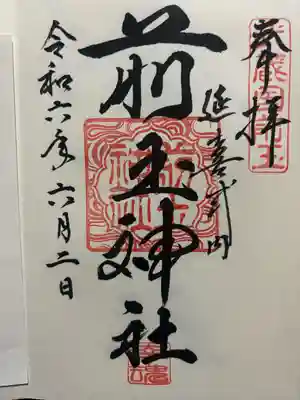 奉拝
延喜式内
前玉神社
令和六年六月二日